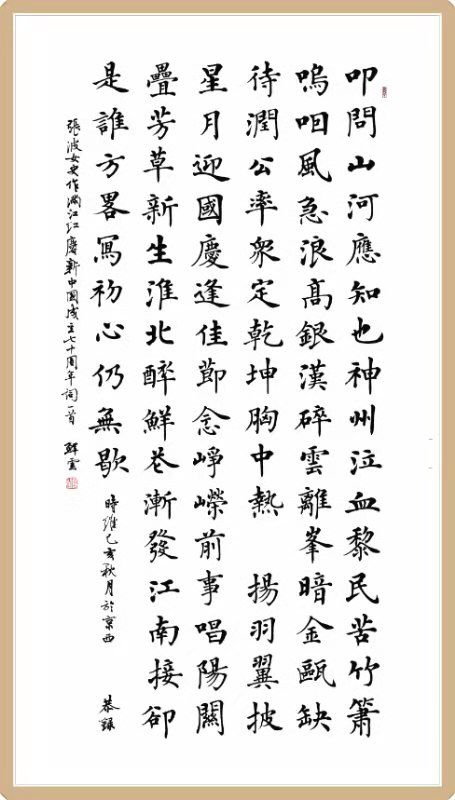 叩問山河應知也神州泣血黎民苦竹簫
嗚咽風急浪高銀漢碎雲離峯暗金甌缺
待潤公率衆定乾坤胸中熱 揚羽翼披
星月迎國慶逢佳節念崢嶸前事唱陽關
疊芳草新生淮北醉鮮花漸發江南接卻
是誰方畧寫初心仍無歇
時維己亥秋月於京西 恭録
張波女史作滿江红慶新中国成立七十周年词一首